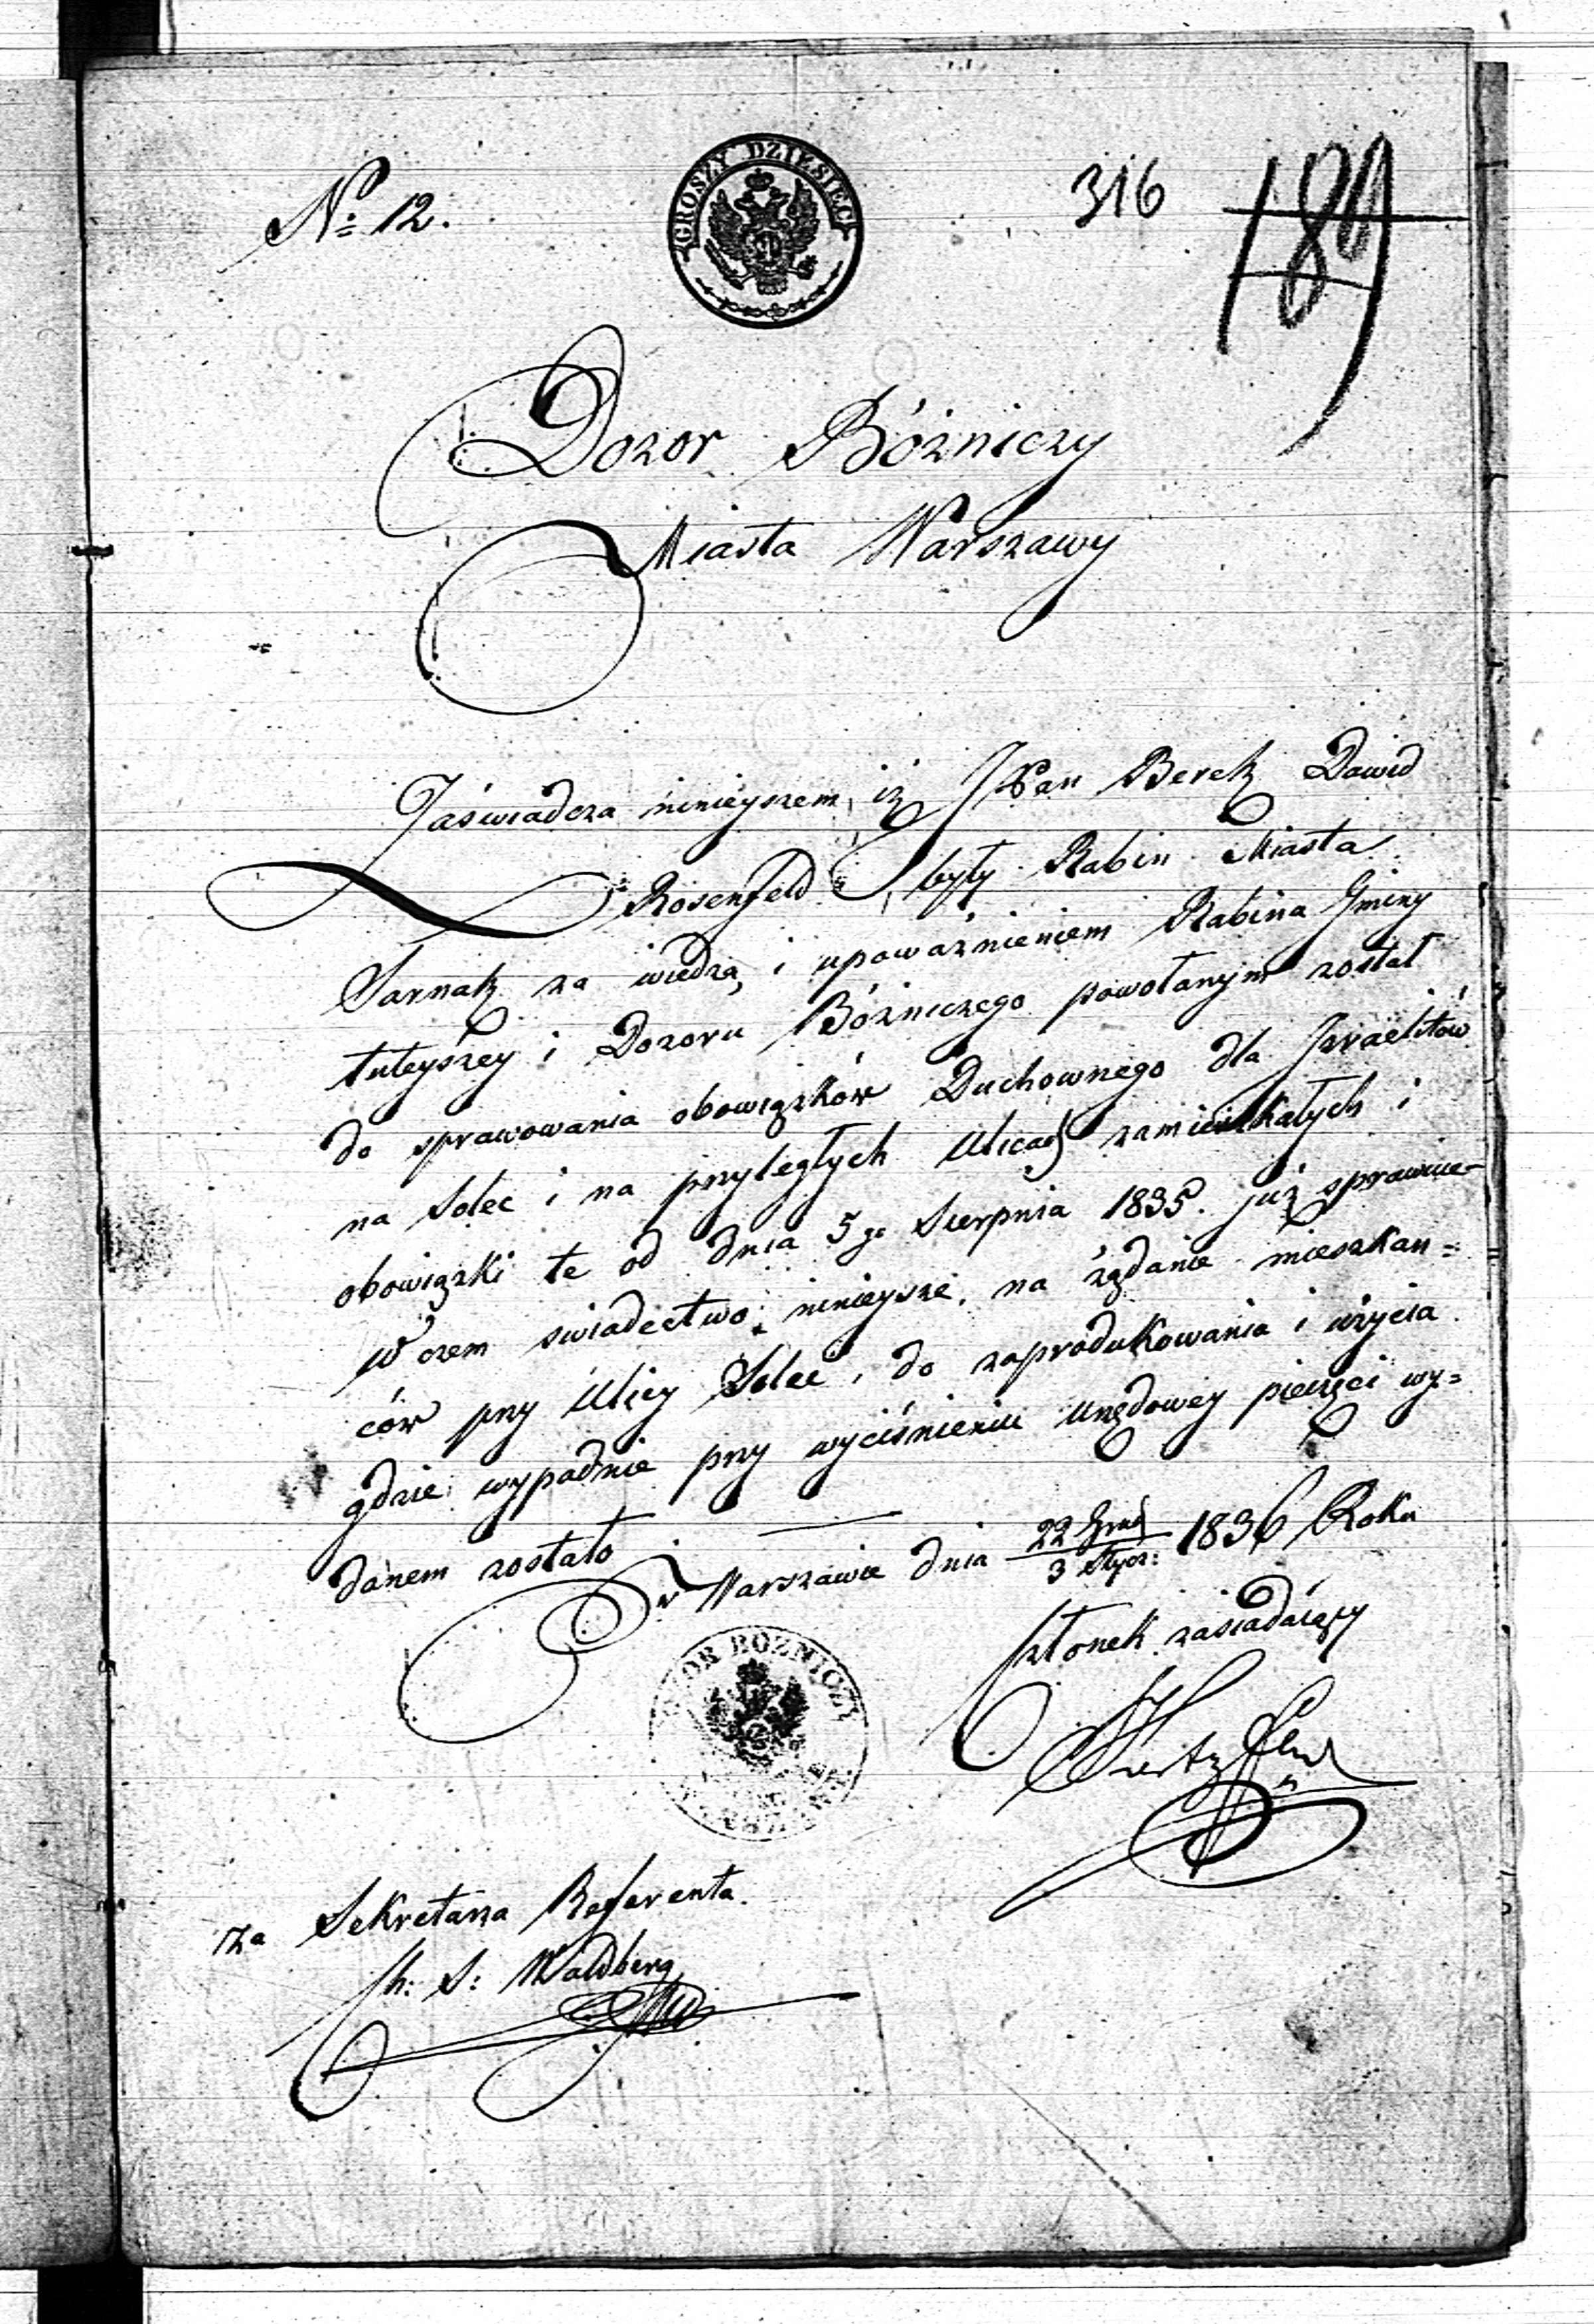 No 12.
GROSZY DZIESIĘC
316
189
Dozor Bóżniczy
Miasta Warszawy
Zaświadcza ninieyszem, iż JPan Berek Dawid
Rosenfeld były Rabin Miasta
Sarnak za wiedzą i upoważnieniem Rabina Gminy
tuteyszey i Dozoru Bóżniczego powołanym został
do sprawowania obowiązków Duchownego dla Izraelitów
na Solec i na przyległych Ulicach zamieszkałych i
obowiązki te od dnia 5go Sierpnia 1835. już sprawuie
W czem swiadectwo ninieysze, na żądanie mieszkań=
ców przy Ulicy Solec, do zaprodukowania i użycia
gdzie wypadnie przy wyciśnieniu Urzędowey pieczęci wy=
danem zostało
w Warszawie dnia 22 Grud / 3 Stycz: 1836 Roku
Członek zasiadaiący
DOZOR BOZNICZY
Za Sekretarza Referenta
S: Waldberg